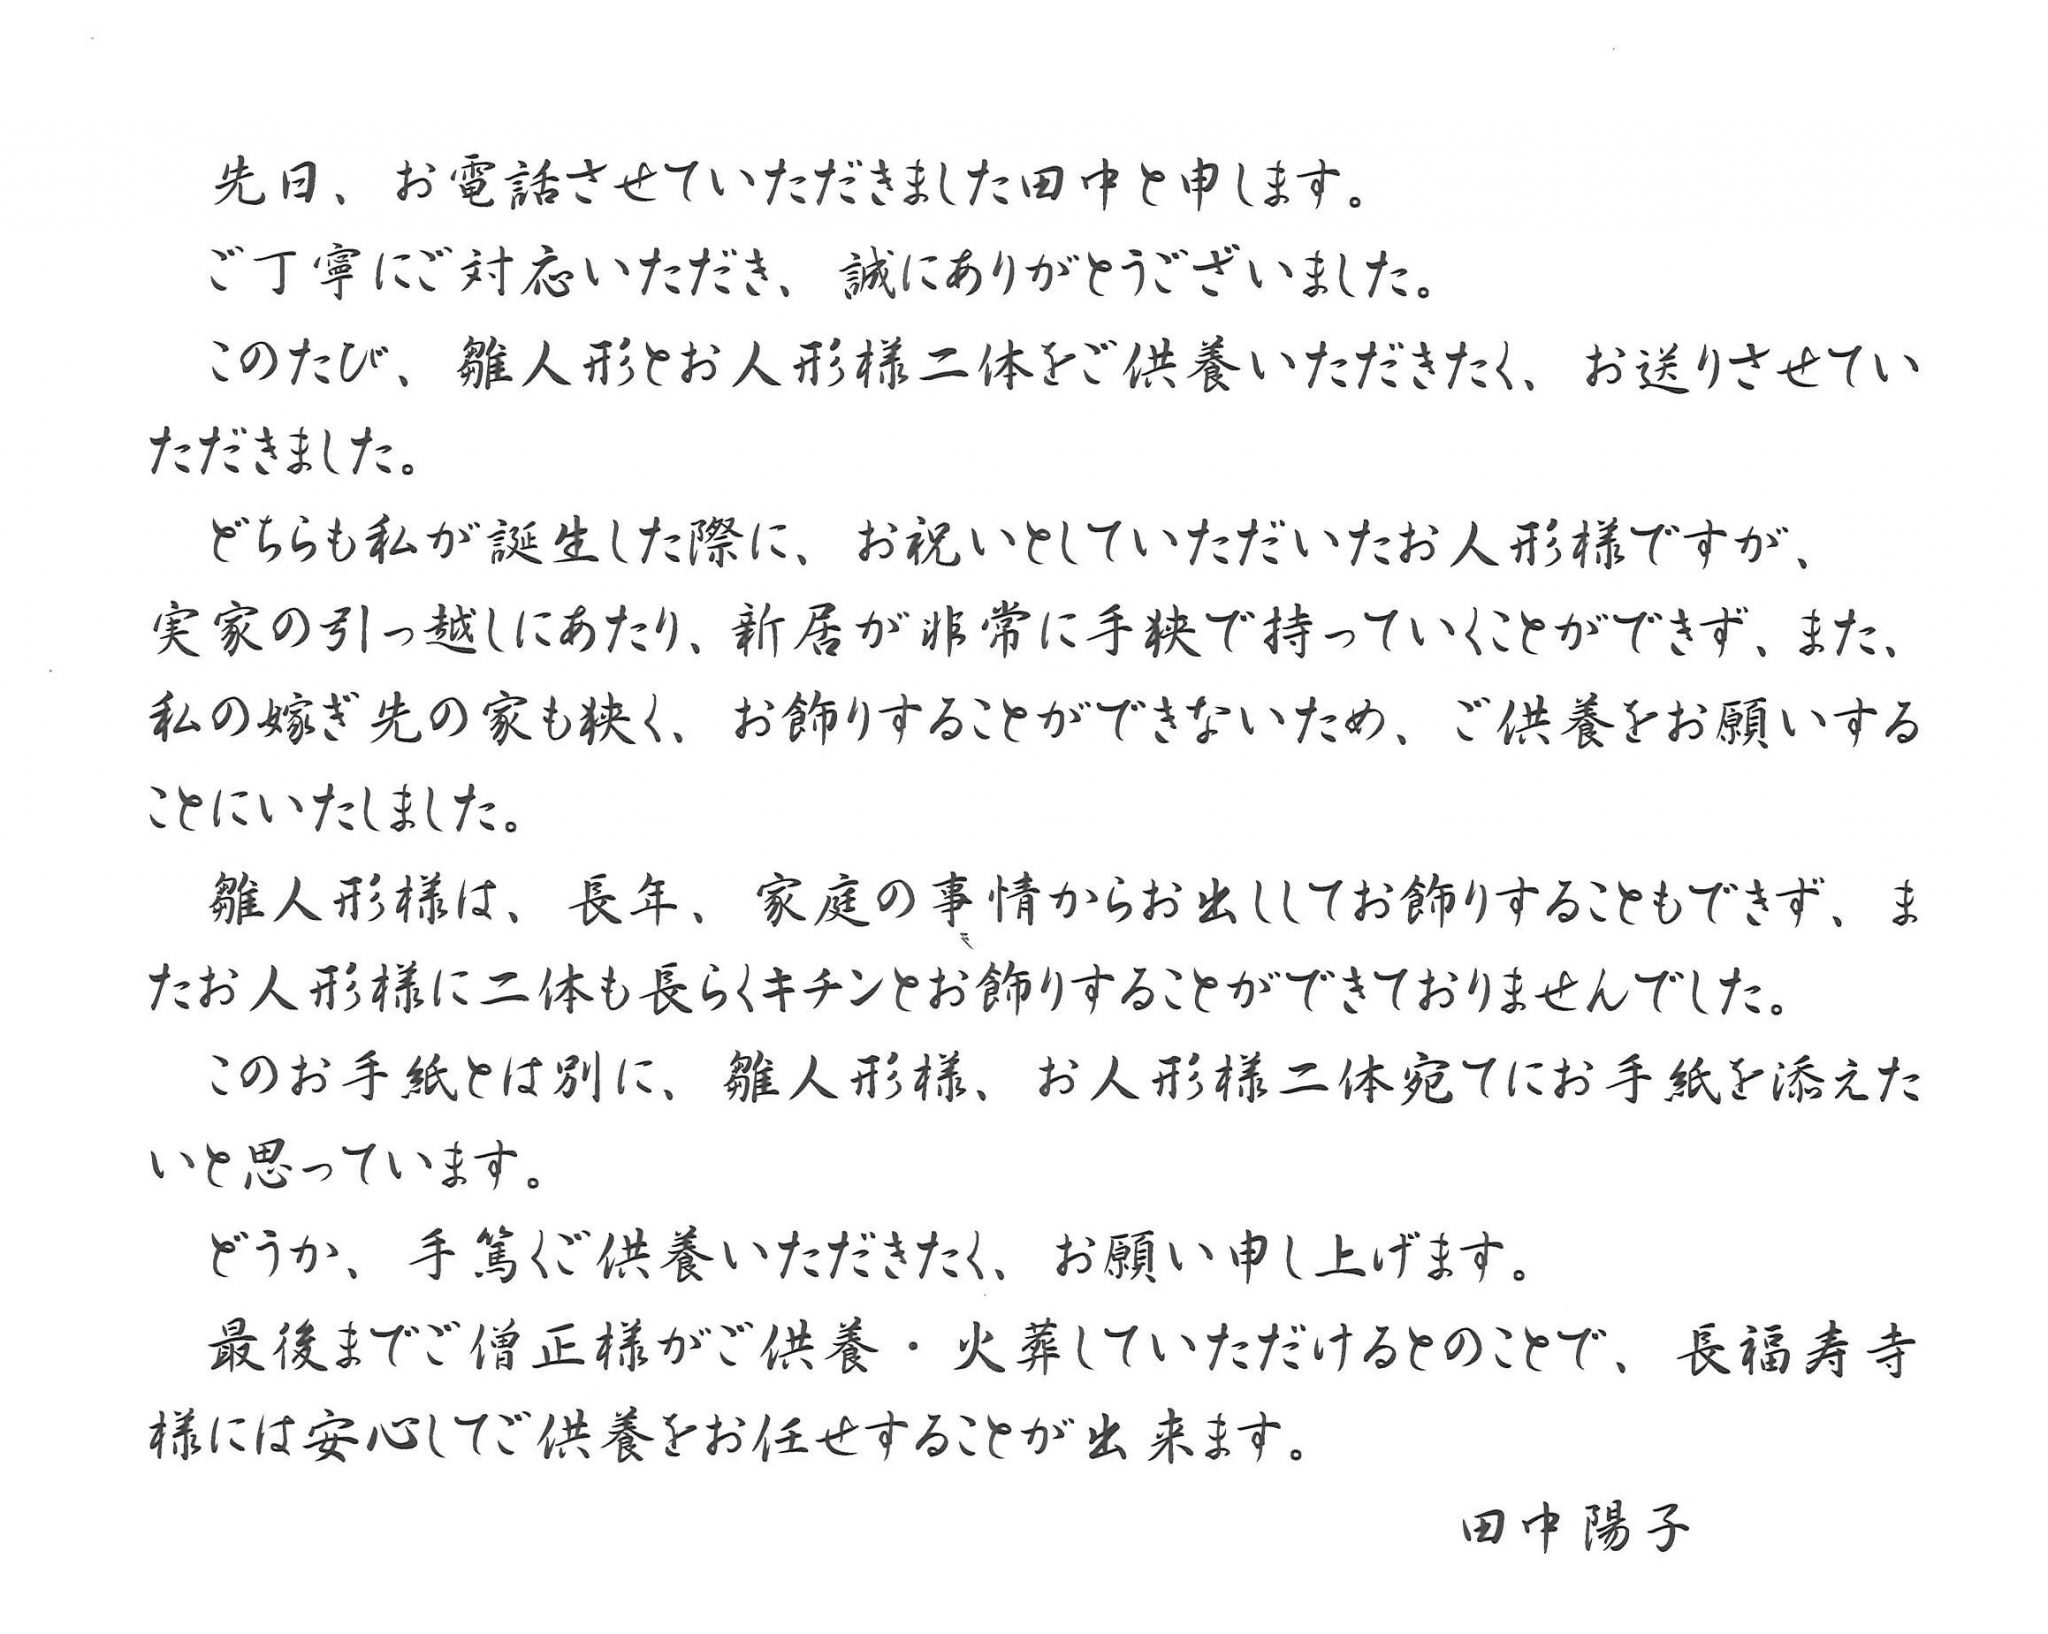 先日、お電話させていただきました田中と申します。
ご丁寧にご対応いただき、誠にありがとうございました。
このたび、雛人形とお人形様二体をご供養いただきたく、お送りさせてい
ただきました。
どちらも私が誕生した際に、お祝いとしていただいたお人形様ですが、
実家の引っ越しにあたり、新居が非常に手狭で持っていくことができず、また、
私の嫁ぎ先の家も狭く、お飾りすることができないため、ご供養をお願いする
ことにいたしました。
雛人形様は、長年、家庭の事情からお出ししてお飾りすることもできず、ま
たお人形様に二体も長らくキチンとお飾りすることができておりませんでした。
このお手紙とは別に、雛人形様、お人形様二体宛てにお手紙を添えた
いと思っています。
どうか、手篤くご供養いただきたく、お願い申し上げます。
最後までご僧正様がご供養・火葬していただけるとのことで、長福寿寺
様には安心してご供養をお任せすることが出来ます。
田中陽子